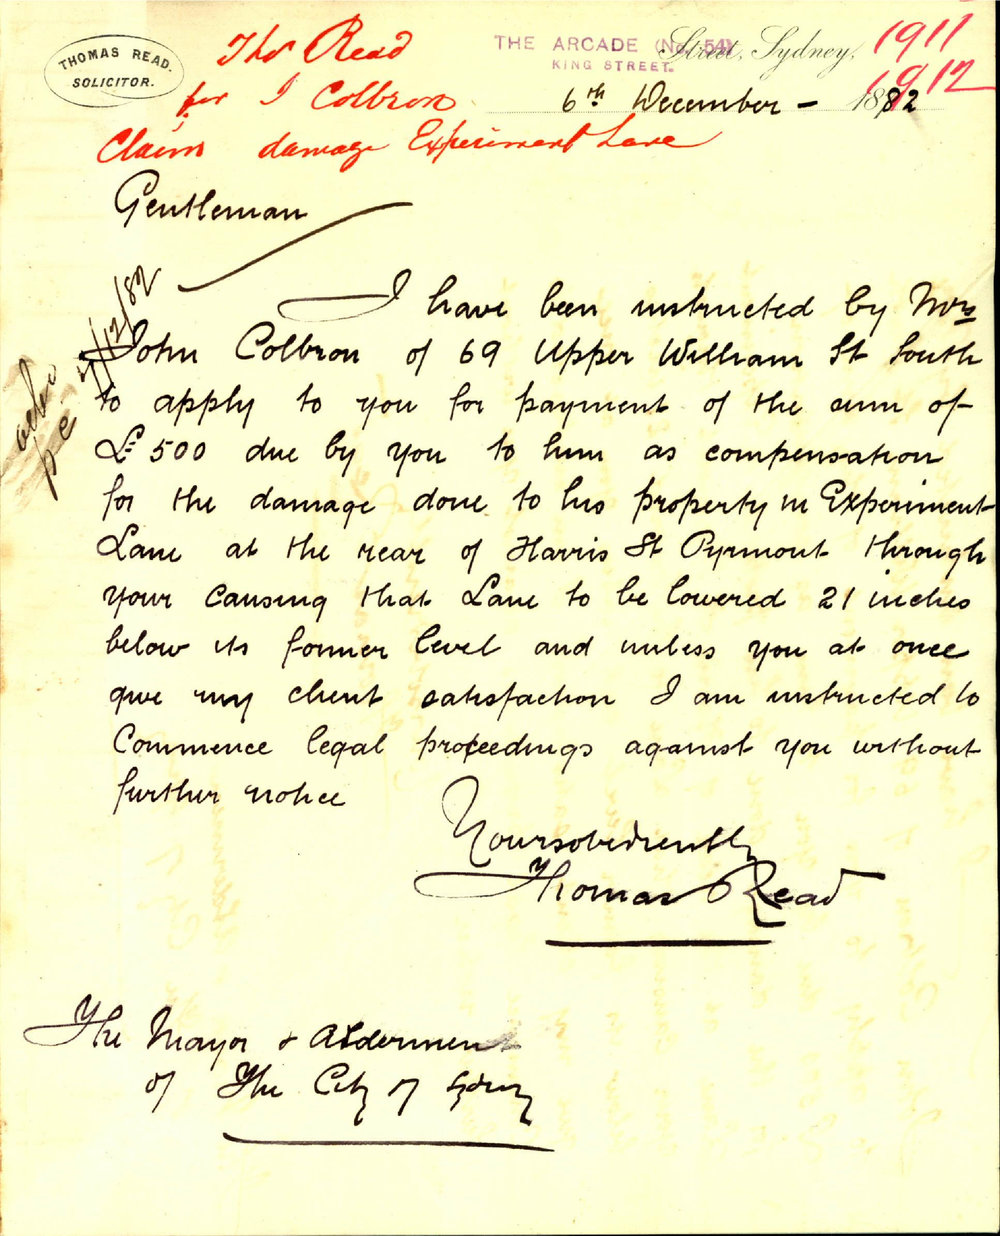 THOMAS READ.
SOLICITOR.
Thos Read
for J Colbron
Claim damage Experiment Lane
THE ARCADE (No. 54)
KING STREET.
Street, Sydney,
1911
1912
6th December - 1882
Gentleman
I have been instructed by Mrs
John Colbron of 69 Upper William St South
to apply to you for payment of the sum of
£500 due by you to him as compensation
for the damage done to his property in Experiment
Lane at the rear of Harris St Pyrmont through
your causing that Lane to be lowered 21 inches
below its former level and unless you at once
give my client satisfaction I am instructed to
Commence legal proceedings against you without
further notice
Yours obediently
Thomas Read
The Mayor & Aldermen
of The City of Sydney
7/12/82